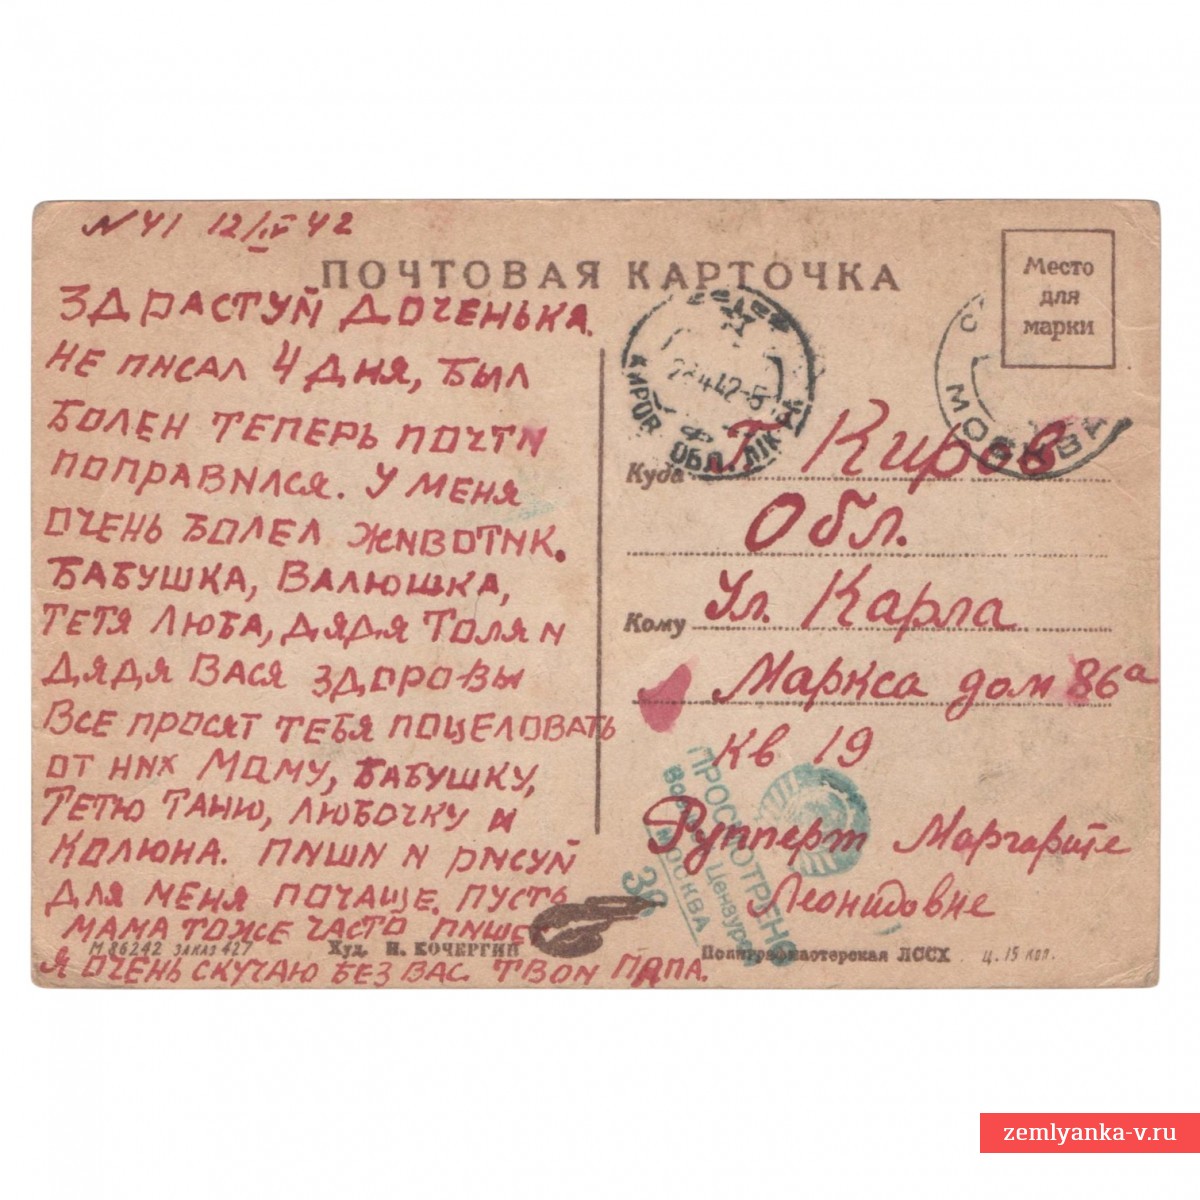 N 41 12/IV 42
ПОЧТОВАЯ КАРТОЧКА
Место
для
марки
ЗДРАСТУЙ ДОЧЕНЬКА.
НЕ ПИСАЛ 4 ДНЯ, БЫЛ
БОЛЕН ТЕПЕРЬ ПОЧТИ
ПОПРАВИЛСЯ. У МЕНЯ
ОЧЕНЬ БОЛЕЛ ЖИВОТИК.
БАБУШКА, ВАЛЮШКА,
ТЕТЯ ЛЮБА, ДЯДЯ ТОЛЯ И
ДЯДЯ ВАСЯ ЗДОРОВЫ
ВСЕ ПРОСЯТ ТЕБЯ ПОЦЕЛОВАТЬ
ОТ НИХ МАМУ, БАБУШКУ,
ТЕТЮ ТАНЮ, ЛЮБОЧКУ И
КОЛЮНА. ПИШИ И РИСУЙ
ДЛЯ МЕНЯ ПОЧАЩЕ. ПУСТЬ
МАМА ТОЖЕ ЧАСТО ПИШЕТ
Я ОЧЕНЬ СКУЧАЮ БЕЗ ВАС ТВОЙ ПАПА.
М 86242 ЗАКАЗ 427
Худ. И. КОЧЕРГИН
Полиграфмастерская ЛССХ
Ц. 15 коп.
КИРОВ ОБЛ.
МОСКВА
Куда
Г. Киров
Обл.
Кому
Ул. Карла
Маркса дом 86а
кв 19
Рупперт Маргарите
Леонидовне
ПРОСМОТРЕНО
Военной Цензурой
МОСКВА
36
zemlyanka-v.ru